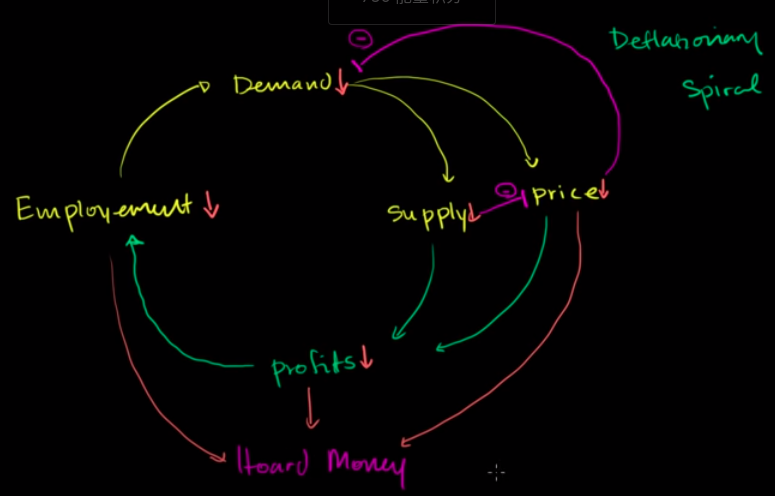 Deflationary
Spiral
Demand↓
Employement ↓
Supply↓
price↓
profits↓
Hoard Money